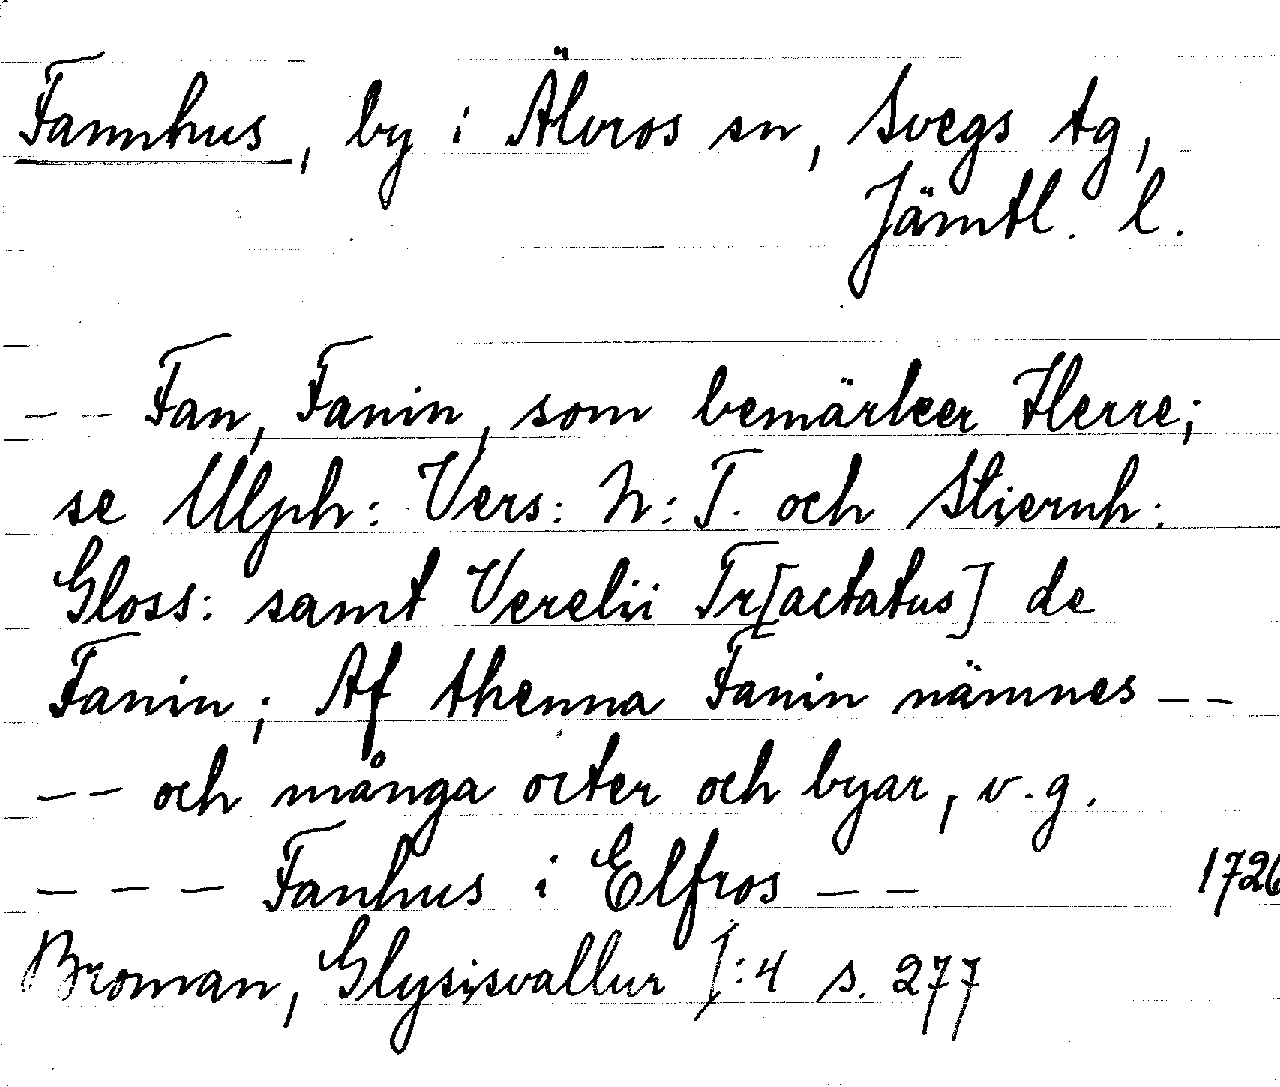 Fannhus, by i Älvros sn, Svegs tg,
Jämtl. l.
-- Fan, Fanin, som bemärker Herre;
se Ulph: Vers: N: T. och Stiernh:
Gloss: samt Verelii Tr[actatus] de
Fanin; Af thenna Fanin nämnes --
-- och många orter och byar, v.g.
--- Fanhus i Elfros -- 1726
Broman, Glysisvallur I:4 s. 277